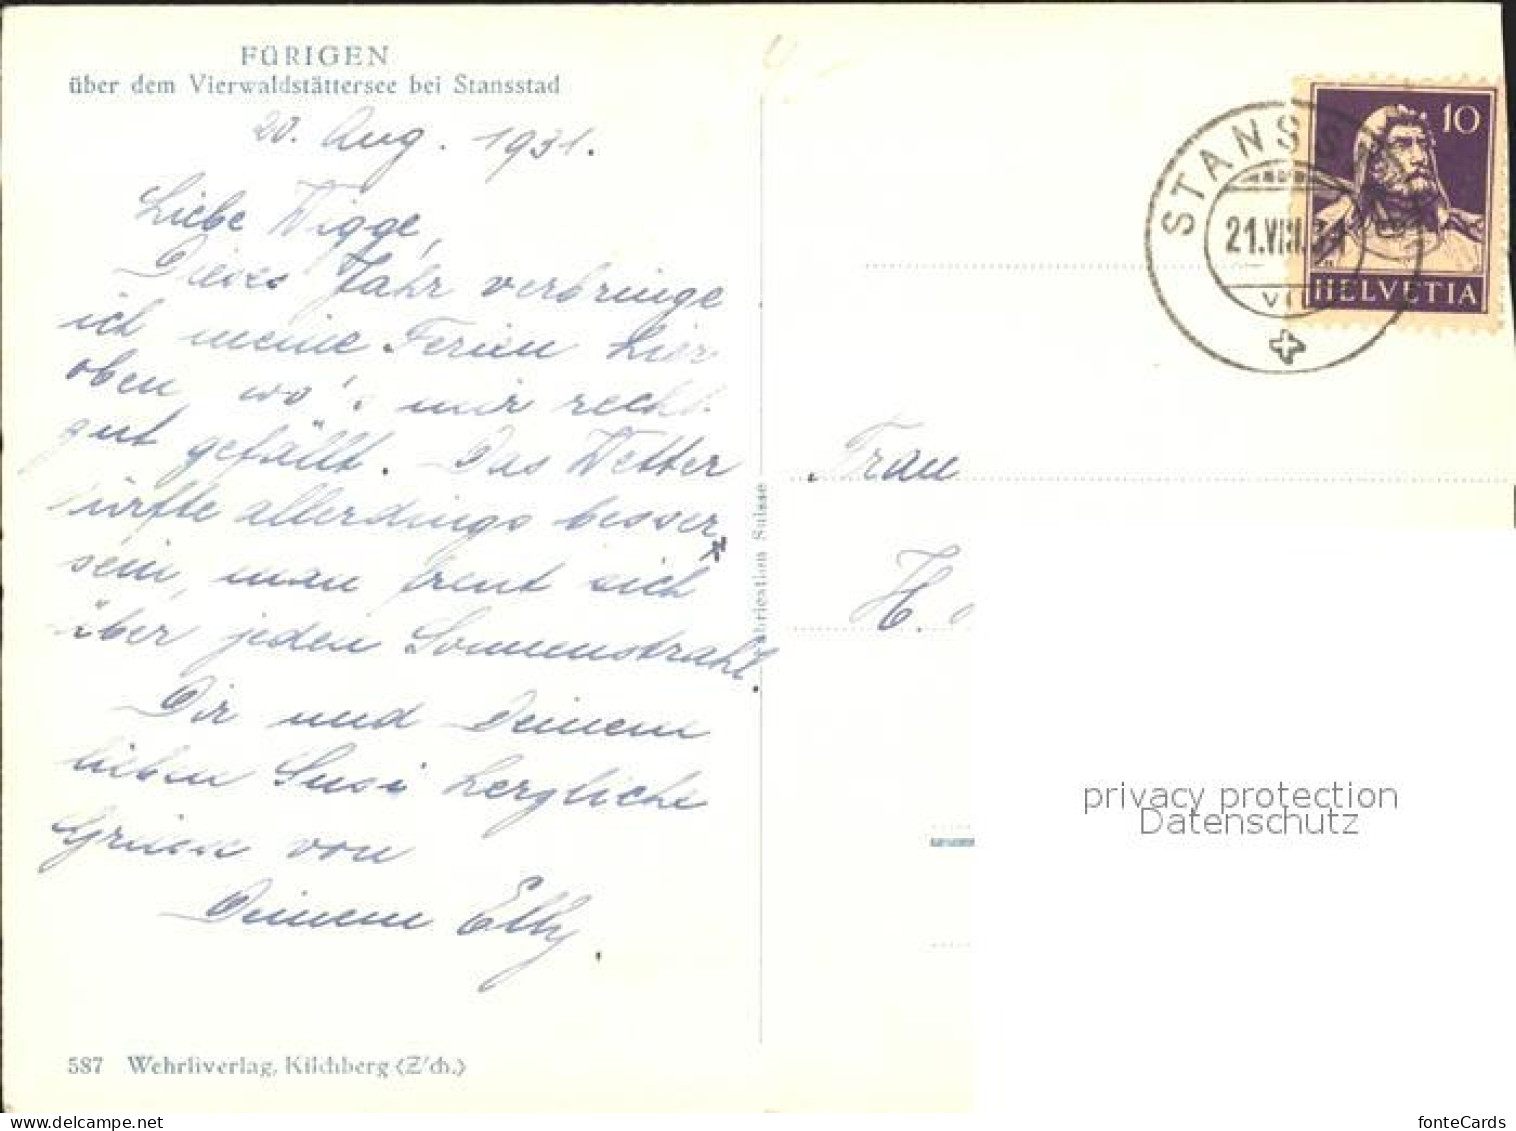 FÜRIGEN
über dem Vierwaldstättersee bei Stansstad
20. Aug. 1931.
Liebe Wigge,
Dieses Jahr verbringe
ich meine Ferien hier
oben, wo's mir recht
gut gefällt. Das Wetter
dürfte allerdings besser
sein, man freut sich
über jeden Sonnenstrahl.
Dir und Deinem
lieben Susi herzliche
Grüsse von
Deinem Elly.
587 Wehrliverlag, Kilchberg (Z'ch.)
Fabrication Suisse
STANSSTAD
21.VIII.31
10
HELVETIA
Frau
H.
privacy protection
Datenschutz
fonteCards